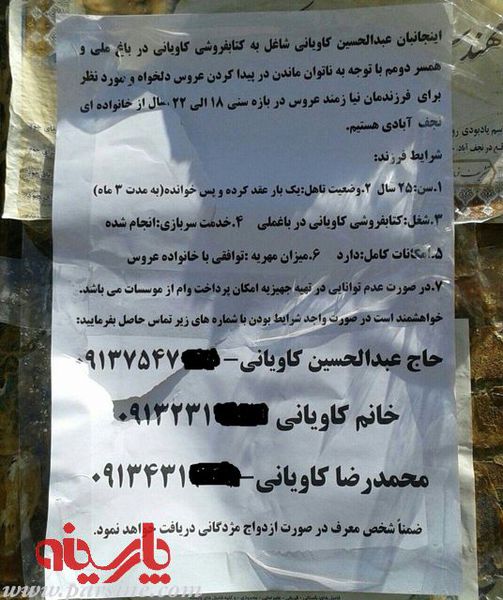 اینجانبان عبدالحسین کاویانی شاغل به کتابفروشی کاویانی در باغ ملی و
همسر دومم با توجه به ناتوان ماندن در پیدا کردن عروس دلخواه و مورد نظر
برای فرزندمان نیازمند عروس در بازه سنی ۱۸ الی ۲۲ سال از خانواده ای
نجف آبادی هستیم.
شرایط فرزند:
۱.سن:۲۵ سال ۲.وضعیت تاهل:یک بار عقد کرده و پس خوانده(به مدت ۳ ماه)
۳.شغل:کتابفروشی کاویانی در باغملی ۴.خدمت سربازی:انجام شده
۵.امکانات کامل:دارد ۶.میزان مهریه :توافقی با خانواده عروس
۷.در صورت عدم توانایی در تهیه جهیزیه امکان پرداخت وام از موسسات می باشد.
خواهشمند است در صورت واجد شرایط بودن با شماره های زیر تماس حاصل بفرمایید:
حاج عبدالحسین کاویانی-۰۹۱۳۷۵۴۷
خانم کاویانی ۰۹۱۳۲۳۱
محمدرضا کاویانی-۰۹۱۳۴۳۱
ضمناً شخص معرف در صورت ازدواج مژدگانی دریافت خواهد نمود.
پارسینه
www.parsine.com